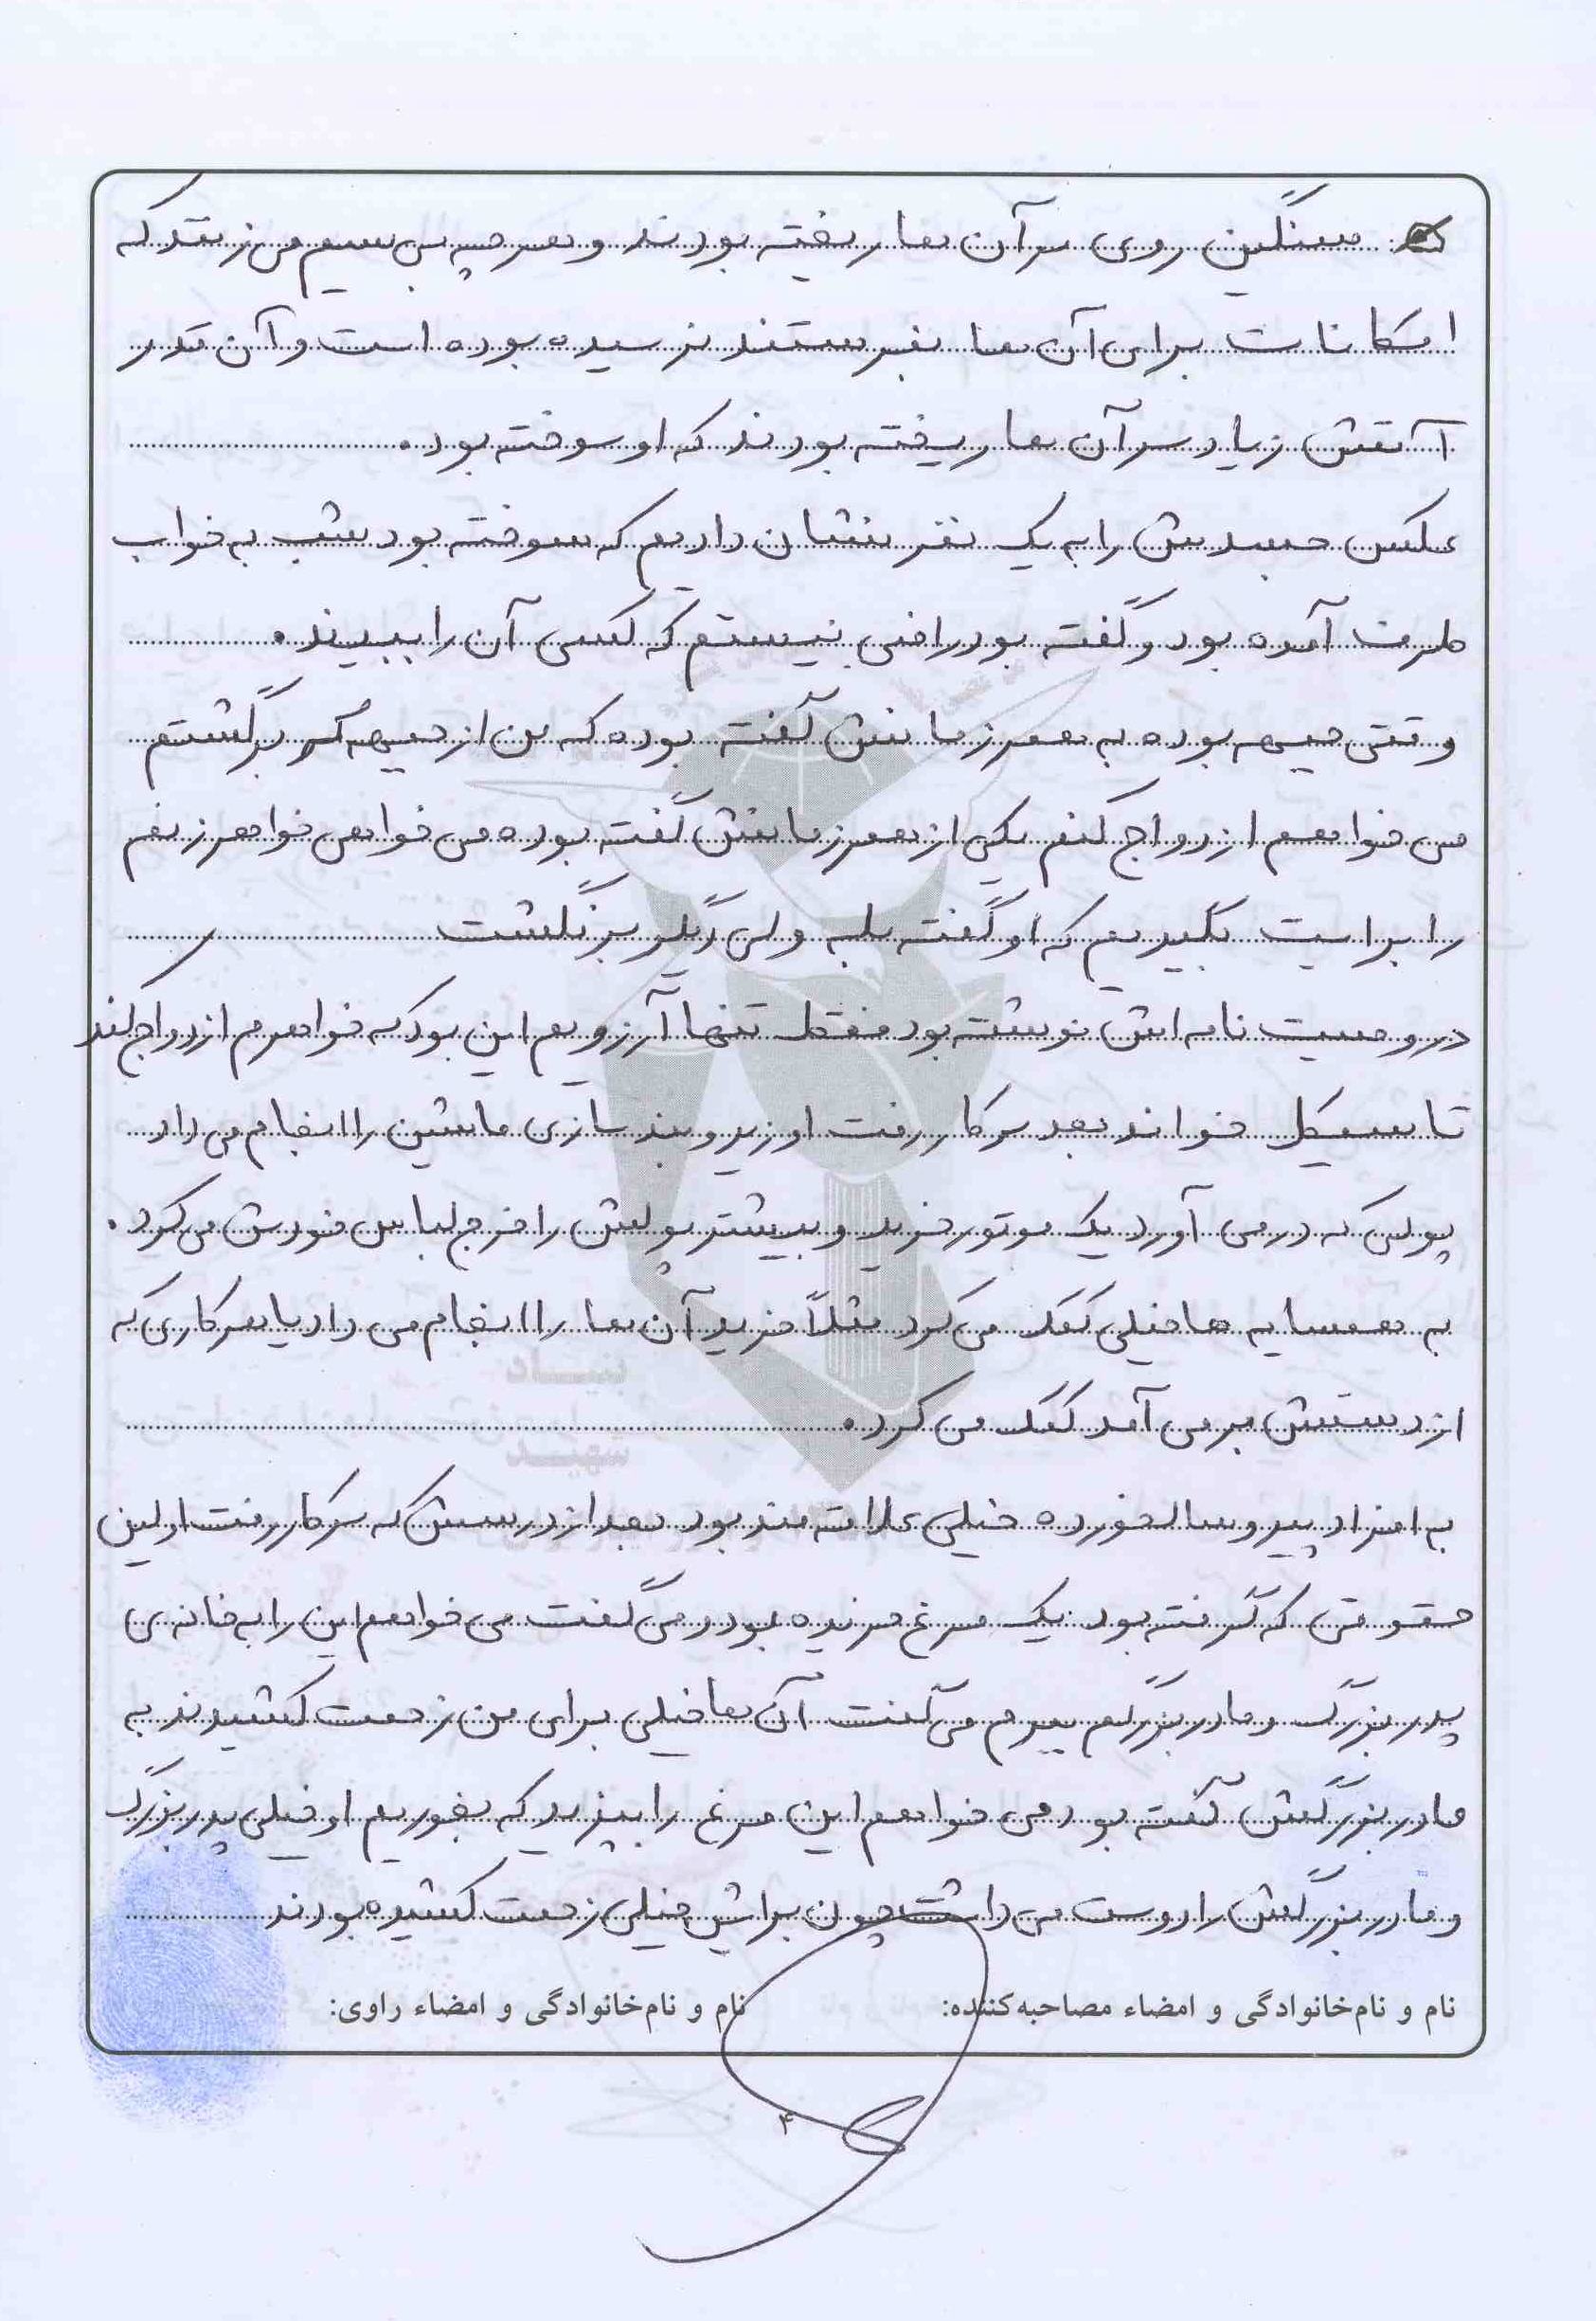 سنگین روی سر آن ها ریخته بودند و هر چه بی سیم می زنند که
امکانات برای آن ها بفرستند نرسیده بوده است و آن قدر
آتش زیاد سر آن ها ریخته بودند که او سوخته بود.
عکس جسدش را به یک نفر نشان دادیم که سوخته بود شب به خواب
طرف آمده بود و گفته بود راضی نیستم که کسی آن را ببیند.
وقتی جبهه بوده به همرزمانش گفته بوده که من از جبهه که برگشتم
می خواهم ازدواج کنم یکی از همرزمانش گفته بوده می خواهی خواهر زنم
را برایت بگیریم که او گفته بله ولی دیگر برنگشت
در وصیت نامه اش نوشته بود فقط تنها آرزویم این بود که خواهرم ازدواج کند
تا سیکل خواند بعد سر کار رفت او زیر و بند سازی ماشین را انجام می داد
پولی که در می آورد یک موتور خرید و بیشتر پولش را خرج لباس خودش می کرد.
به همسایه ها خیلی کمک می کرد مثلاً خرید آن ها را انجام می داد یا هر کاری که
از دستش بر می آمد کمک می کرد.
به افراد پیر و سالخورده خیلی علاقه مند بود بعد از درسش که سر کار رفت اولین
حقوقی که گرفته بود یک مرغ خریده بود و می گفت می خواهم این را به خانه ی
پدر بزرگ و مادر بزرگم ببرم می گفت آن ها خیلی برای من زحمت کشیدند به
مادر بزرگش گفته بود می خواهم این مرغ را بپزید که بخوریم او خیلی پدر بزرگ
و مادر بزرگش را دوست می داشت چون برایش خیلی زحمت کشیده بودند
نام و نام‌خانوادگی و امضاء مصاحبه‌کننده: نام و نام‌خانوادگی و امضاء راوی:
۴